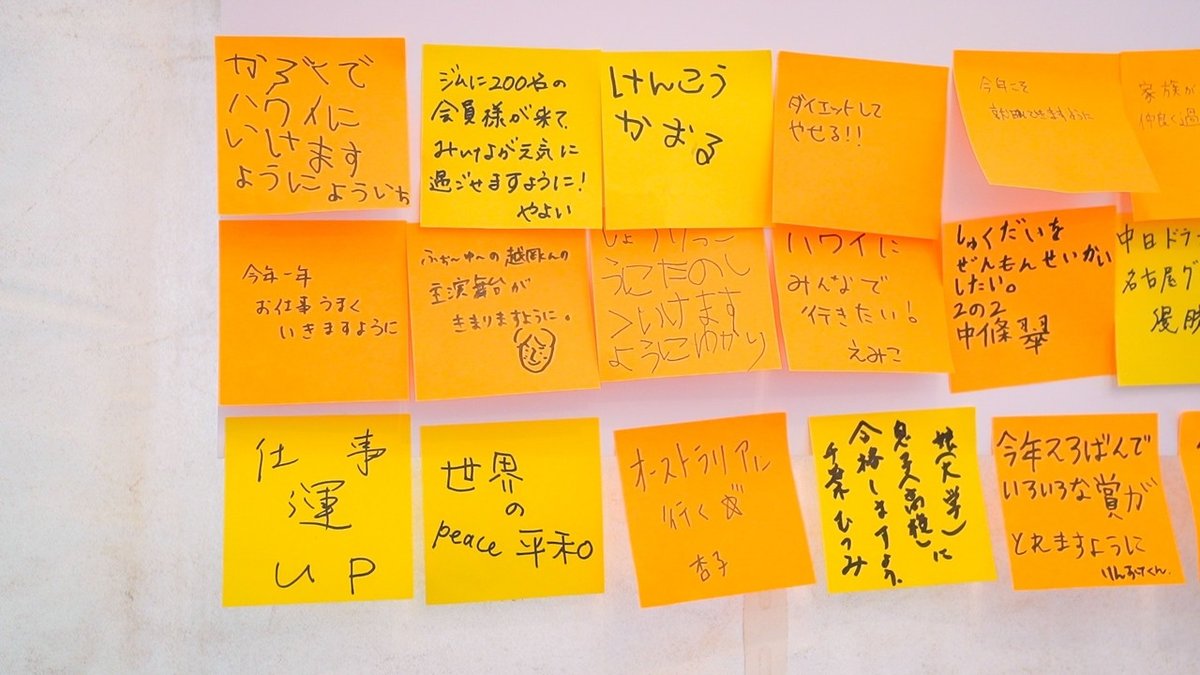 かぞくで
ハワイに
いけます
ようによういち
ジムに200名の
会員様が来て、
みんなが元気に
過ごせますように!
やよい
けんこう
かおる
ダイエットして
やせる!!
今年こそ
できますように
家族が
仲良く過
今年一年
お仕事うまく
いきますように
ふぉ〜ゆ〜の越岡くんの
主演舞台が
きまりますように。
うにたのし
くいけます
ようにゆかり
ハワイに
みんなで
行きたい!
えみこ
しゅくだいを
ぜんもんせいかい
したい。
2の2
中條翠
中日ドラ
名古屋グ
優勝
仕事
運
UP
世界
の
peace 平和
オーストラリアに
行く
杏子
娘(大学)に
息子(高校)
合格しますよう。
千葉むつみ
今年そろばんで
いろいろな賞が
とれますように